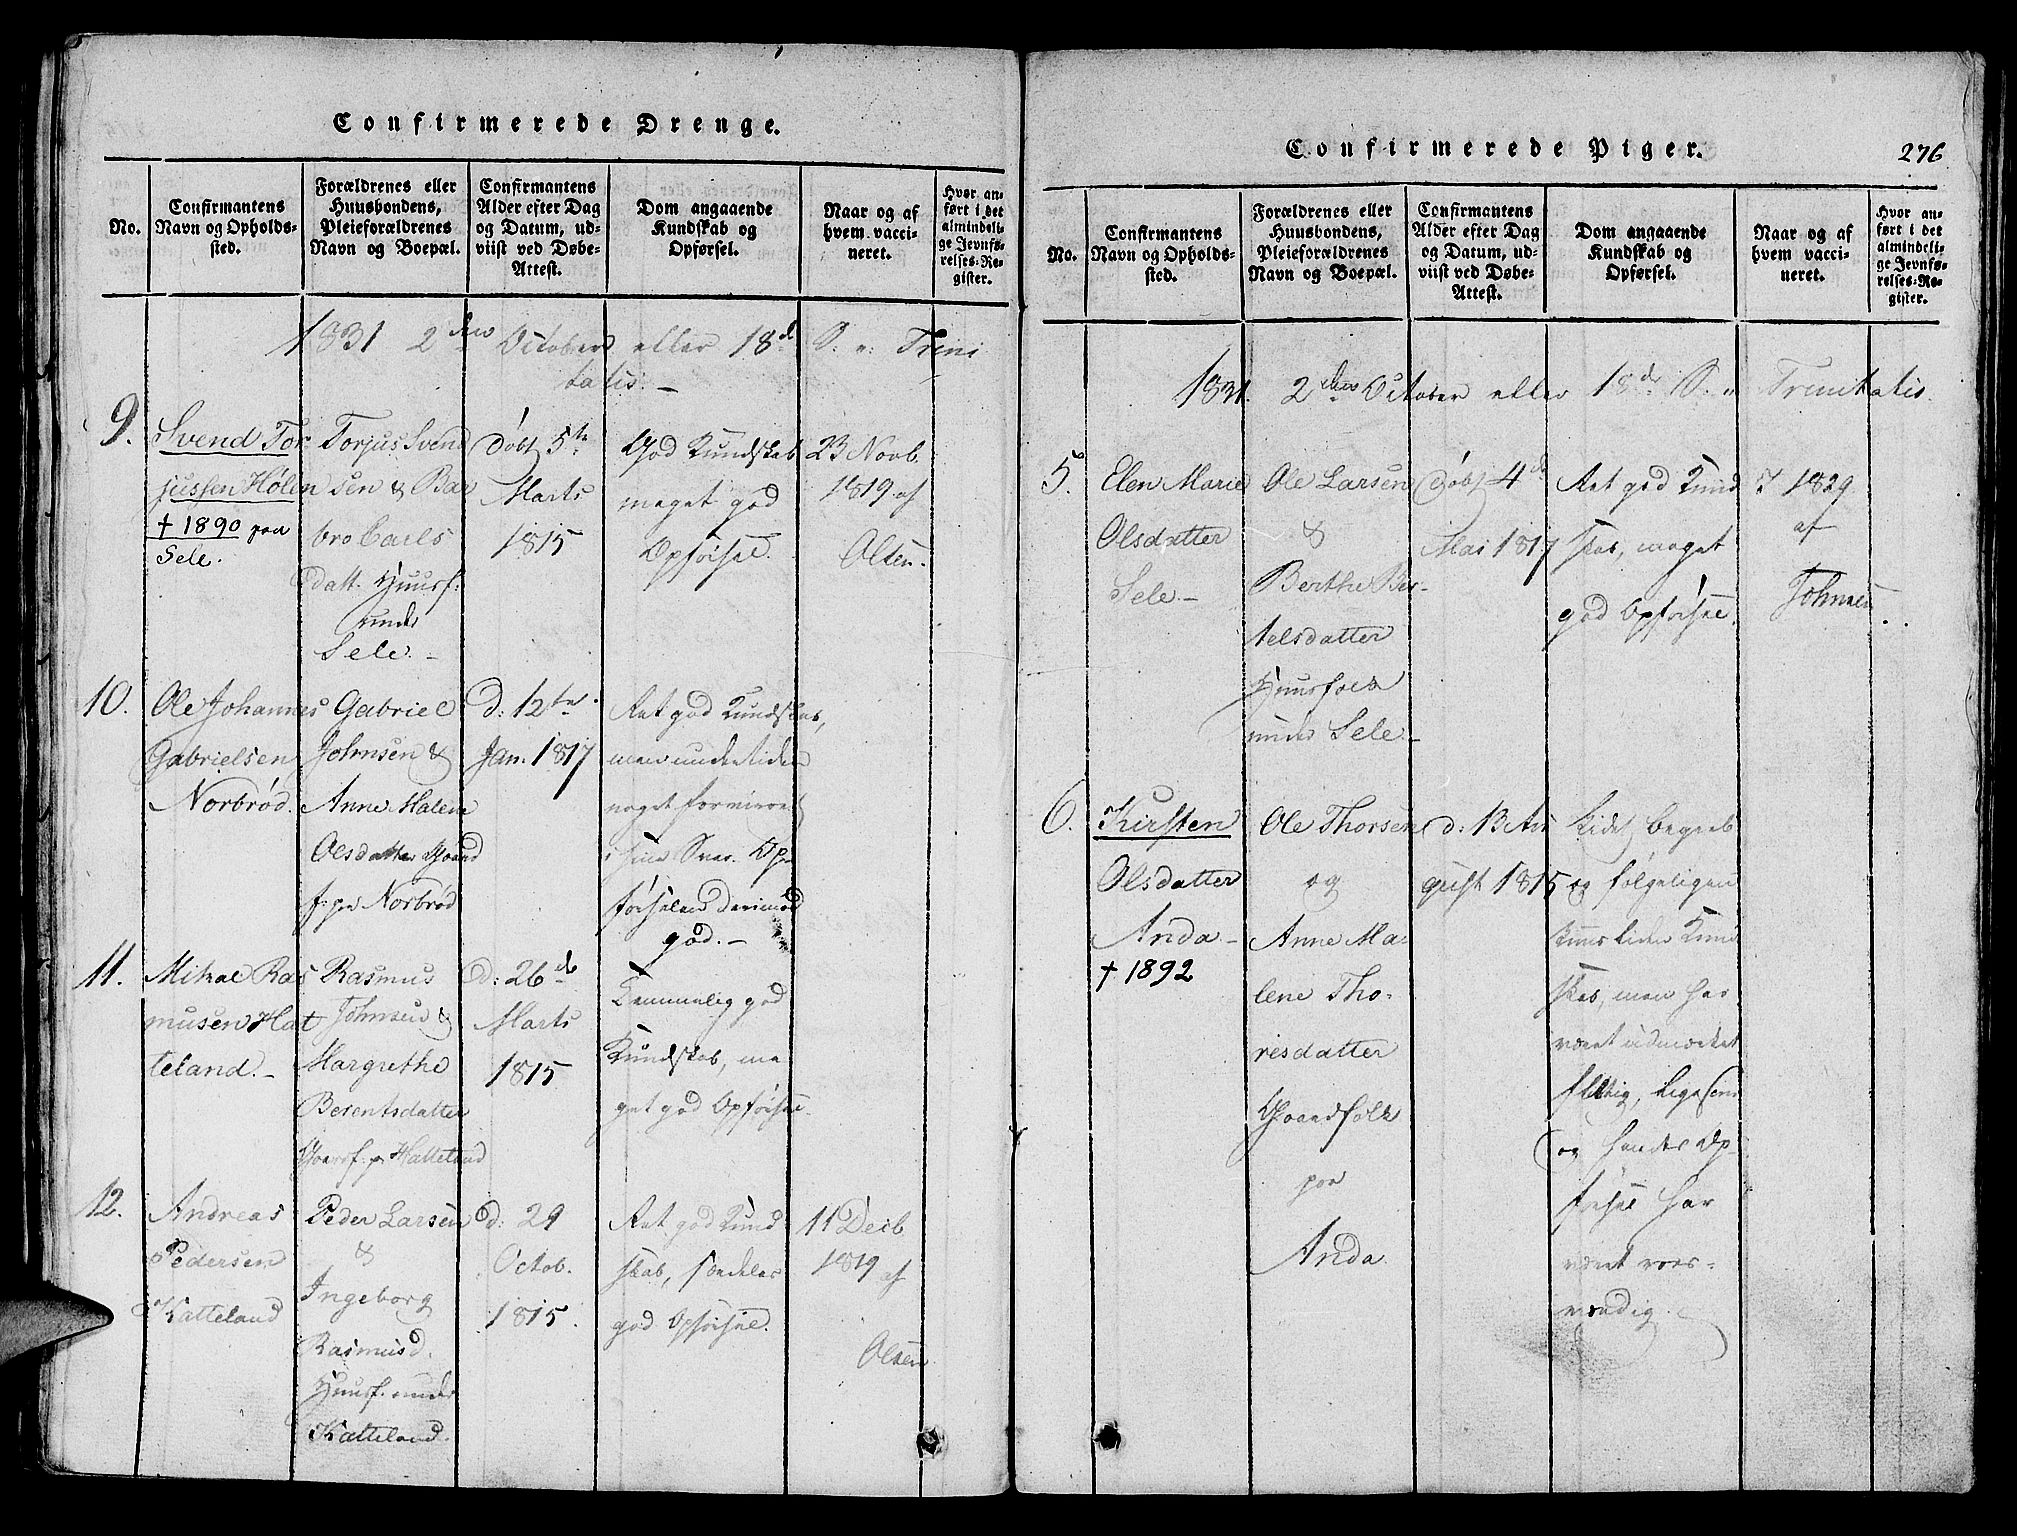 Confirmerede Drenge.
No.
Confirmantens
Navn og Opholds-
sted.
Forældrenes eller
Huusbondens,
Pleieforældrenes
Navn og Boepæl.
Confirmantens
Alder efter Dag
og Datum, ud-
viist ved Døbe-
Attest.
Dom angaaende
Kundskab og
Opførsel.
Naar og af
hvem vacci-
neret.
Hvor an-
ført i det
almindeli-
ge Jevnfø-
relses-Re-
gister.
1831 2den October eller 18de S. e. Trini
tatis. —
9.
Svend Tor
jussen Hølen
† 1890 paa
Sele.
Torjus Svend
sen & Bar
bro Carls
datt. Huusf.
under
Sele. —
Døbt 5te
Marts
1815
God Kundskab
meget god
Opførsel.
23 Novb.
1819 af
Olsen.
10.
Ole Johannes
Gabrielsen
Norbrød.
Gabriel
Johnsen &
Anne Malene
Olsdatter Gaard
f. paa Norbrød
D: 12te
Jan. 1817
Ret god Kundskab,
men undertiden
noget forvirret
i sine Svar. Op-
førselen derimod
god. —
11.
Mikal Ras
musen Hat
teland. —
Rasmus
Johnsen &
Margrethe
Berentsdatter
Gaardf. p. Hatteland
D: 26de
Marts
1815
Temmelig god
Kundskab, me
get god Opførsel.
12.
Andreas
Pedersen
Hatteland
Peder Larsen
&
Ingeborg
Rasmusd.
Huusf. under
Hatteland.
d: 29
Octob.
1815.
Ret god Kund
skab, særdeles
god Opførsel.
11 Decb
1819 af
Olsen
Confirmerede Piger.
276
No.
Confirmantens
Navn og Opholds-
sted.
Forældrenes eller
Huusbondens,
Pleieforældrenes
Navn og Boepæl.
Confirmantens
Alder efter Dag
og Datum, ud-
viist ved Døbe-
Attest.
Dom angaaende
Kundskab og
Opførsel.
Naar og af
hvem vacci-
neret.
Hvor an-
ført i det
almindeli-
ge Jevnfø-
relses-Re-
gister.
1831. 2den October eller 18de S. e. Trinitatis.
5.
Elen Marie
Olsdatter
Sele. —
Ole Larsen
&
Berthe Ber-
telsdatter
Huusfolk
under Sele. —
Døbt 4de
Mai 1817
Ret god Kund
skab, meget
god Opførsel.
1829
af
Johnsen
6.
Kirsten
Olsdatter
Anda —
† 1892
Ole Thorsen
og
Anne Ma-
lene Tho-
resdatter
Gaardfolk
paa
Anda
d: 13 Au
gust 1815
Lidet begreb
og følgeligen
kuns liden Kund
skab, men har
været udmærket
flittig, ligesom
og hendes Op-
førsel har
været roes-
værdig.